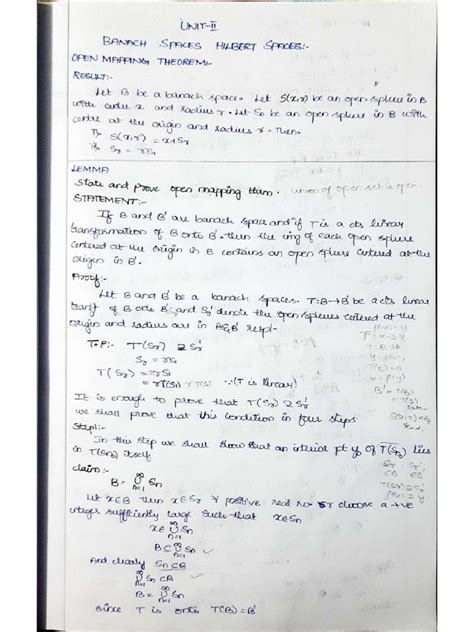 UNIT-II
BANACH SPACES HILBERT SPACES:-
OPEN MAPPING THEOREM:-
RESULT:-
Let B be a banach space. Let S(x,r) be an open sphere in B
with centre x and radius r. Let Sr be an open sphere in B with
centre at the origin and radius r. Then.
S(x,r) = x+Sr
Sr = rS1
LEMMA
State and prove open mapping thm. union of open set is open.
STATEMENT:-
If B and B' are banach space and if T is a cts linear
transformation of B onto B'. then the img of each open sphere
centered at the origin in B contains an open sphere centered at the
origin in B'.
Proof:-
Let B and B' be a banach spaces. T:B→B' be a cts linear
transf of B onto B' and denote the open spheres centered at the
origin and radius are in B & B' respl-
T.P:- T(Sr) ⊇ S'r
Sr = rS1
T(Sr) = T(rS1)
= rT(S1) ∵(T is linear)
It is enough to prove that T(S1) ⊇ S'r
we shall prove that this condition in four steps.
Step1:-
In this step we shall show that an interior pt of T(S1) lies
in T(S1) itself
claim:-
B = ∞∪n=1 Sn
Let x∈B then x∈Sr ∀ positive real no r choose a +ve
integer sufficiently large such that x∈Sn
x∈ ∞∪n=1 Sn
B⊂ ∞∪n=1 Sn ✓
And clearly Sn⊂B
∞∪n=1 Sn ⊂B ✓
B = ∞∪n=1 Sn
Since T is onto T(B)=B'